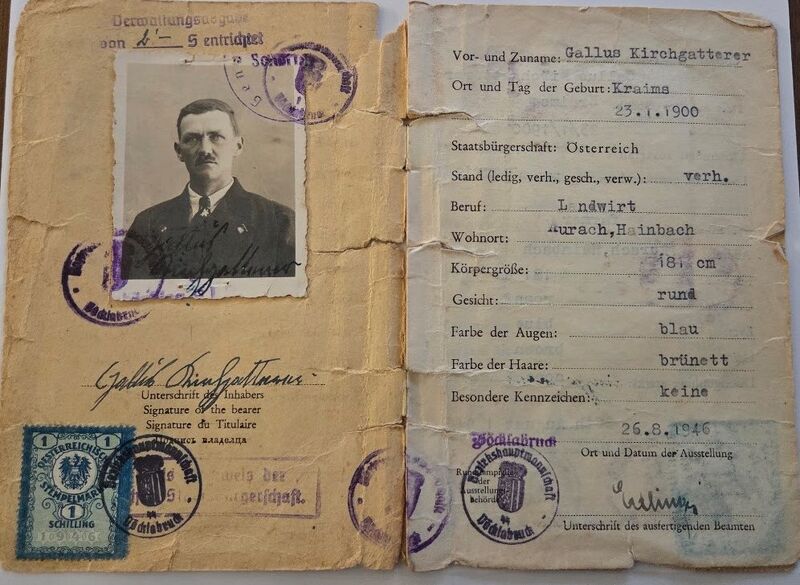 Verwaltungsabgabe
von 2'— S entrichtet
Gallus
Kirchgatterer
Vöcklabruck
Gallus Kirchgatterer
Unterschrift des Inhabers
Signature of the bearer
Signature du Titulaire
Подпись владельца
1 1
ÖSTERREICHISCHE
STEMPELMARKE
1
SCHILLING
Bezirkshauptmannschaft
Vöcklabruck
Vor- und Zuname: Gallus Kirchgatterer
Ort und Tag der Geburt: Kraims
23.1.1900
Staatsbürgerschaft: Österreich
Stand (ledig, verh., gesch., verw.): verh.
Beruf: Landwirt
Wohnort: Aurach,Hainbach
Körpergröße: 181 cm
Gesicht: rund
Farbe der Augen: blau
Farbe der Haare: brünett
Besondere Kennzeichen: keine
Vöcklabruck 26.8.1946
Ort und Datum der Ausstellung
Bezirkshauptmannschaft
Vöcklabruck
Unterschrift des ausfertigenden Beamten